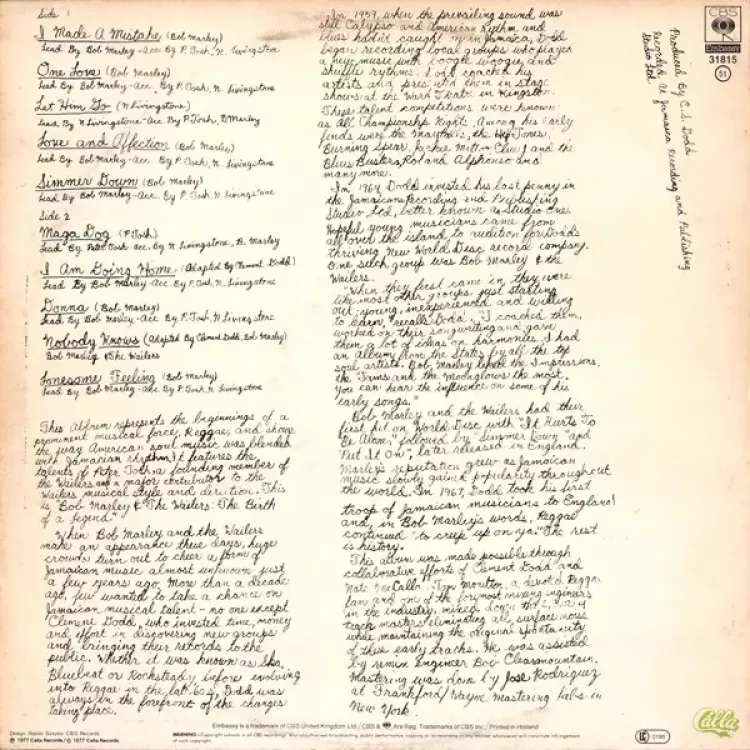 Side 1
I Made A Mistake (Bob Marley)
Lead By Bob Marley - Acc. By P. Tosh, N. Livingstone
One Love (Bob Marley)
Lead By Bob Marley - Acc. By P. Tosh, N. Livingstone
Let Him Go (N Livingstone)
Lead By N Livingstone - Acc By P Tosh, B Marley
Love and Affection (Bob Marley)
Lead By Bob Marley - Acc. By P. Tosh, N. Livingstone
Simmer Down (Bob Marley)
Lead By Bob Marley - Acc By P. Tosh, N. Livingstone
Side 2
Maga Dog (P. Tosh)
Lead By Peter Tosh acc. By N. Livingstone, B. Marley
I Am Going Home (Adapted By Clement Dodd)
Lead By Bob Marley - Acc. By P. Tosh, N Livingstone
Donna (Bob Marley)
Lead By Bob Marley - Acc By P. Tosh, N Livingstone
Nobody Knows (Adapted By Clement Dodd, Bob Marley)
Bob Marley & The Wailers
Lonesome Feeling (Bob Marley)
Lead By Bob Marley - Acc. By P. Tosh, N. Livingstone
This Album represents the beginnings of a
prominent musical force, Reggae, and shows
the way American soul music was blended
with Jamacian rhythm. It features the
talents of Peter Tosh - a founding member of
the Wailers and a major
Wailers musical style and This
is "Bob Marley & The Wailers: The Birth
of a Legend."
When Bob Marley and the Wailers
make an appearance these days, huge
crowds turn out to cheer a form of
Jamaican music almost unknown just
a few years ago. More than a decade
ago, few wanted to take a chance on
Jamaican musical talent - no one except
Clement Dodd, who invested time, money
and effort in discovering new groups
and bringing their records to the
public. Whether it was known as Ska,
Bluebeat or Rocksteady before evolving
into Reggae in the late 60s, Dodd was
always in the forefront of the changes
taking place.
In 1959, when the prevailing sound was
still Calypso and American rhythm and
blues hadn't caught on in Jamaica, Dodd
began recording local groups who played
a new music with boogie woogie and
shuffle rythms. Dodd coached his
artists and presented them in stage
shows at the Ward Theatre in Kingston.
These talent competitions were known
as All Championship Nights. Among his early
finds were the Maytals, the HepTones,
Burning Spear, Jackie Mittoo and the
Blues Busters, Roland Alphonso and
many more.
In 1964, Dodd invested his last penny in
the Jamaicans Recording and Publishing
Studio Ltd., better known as Studio One.
Hopeful young musicians came from
all over the island to audition for Dodd's
thriving New World Disc record company.
One such group was Bob Marley & the
Wailers.
"When they first came in they were
like most other groups just starting
out - young, inexperienced and willing
to learn," recalls Dodd. "I coached them,
worked on their songwriting and gave
them a lot of ideas on harmonies. I had
an album from the States by all the top
soul artists. Bob Marley liked the Impressions,
the Tams and the Moonglows the most.
You can hear the influence on some of his
early songs."
Bob Marley and the Wailers had their
first hit on World Disc with "It Hurts To
Be Alone," followed by "Simmer Down" and
"Put It On", later released in England.
Marley's reputation grew as Jamaican
music slowly gained popularity throughout
the world. In 1967, Dodd took his first
troop of Jamaican musicians to England
and, in Bob Marley's words, Reggae
continued "to creep up on ya." The rest
is history.
This album was made possible through
collaborative efforts of Clement Dodd and
Nate McCalla. Tom Moulton, a devoted Reggae
fan and one of the foremost mixing engineers
in the industry, mixed down the 2, 4
track masters eliminating all surface noise
while maintaining the original spontaneity
of these early tracks. He was assisted
by remix Engineer Bob Clearmountain.
Mastering was done by José Rodriguez
at Frankford/Wayne Mastering Labs. in
New York.
Produced By C.S. Dodd
Recorded At Jamaica Recording and Publishing
Studio Ltd.
CBS
Embassy
31815
51
Calla
Embassy is a Trademark of CBS United Kingdom Ltd. / CBS & Are Reg. Trademarks of CBS Inc. / Printed in Holland
Design: CBS Records
℗ 1977 Calla Records / © 1977 Calla Records